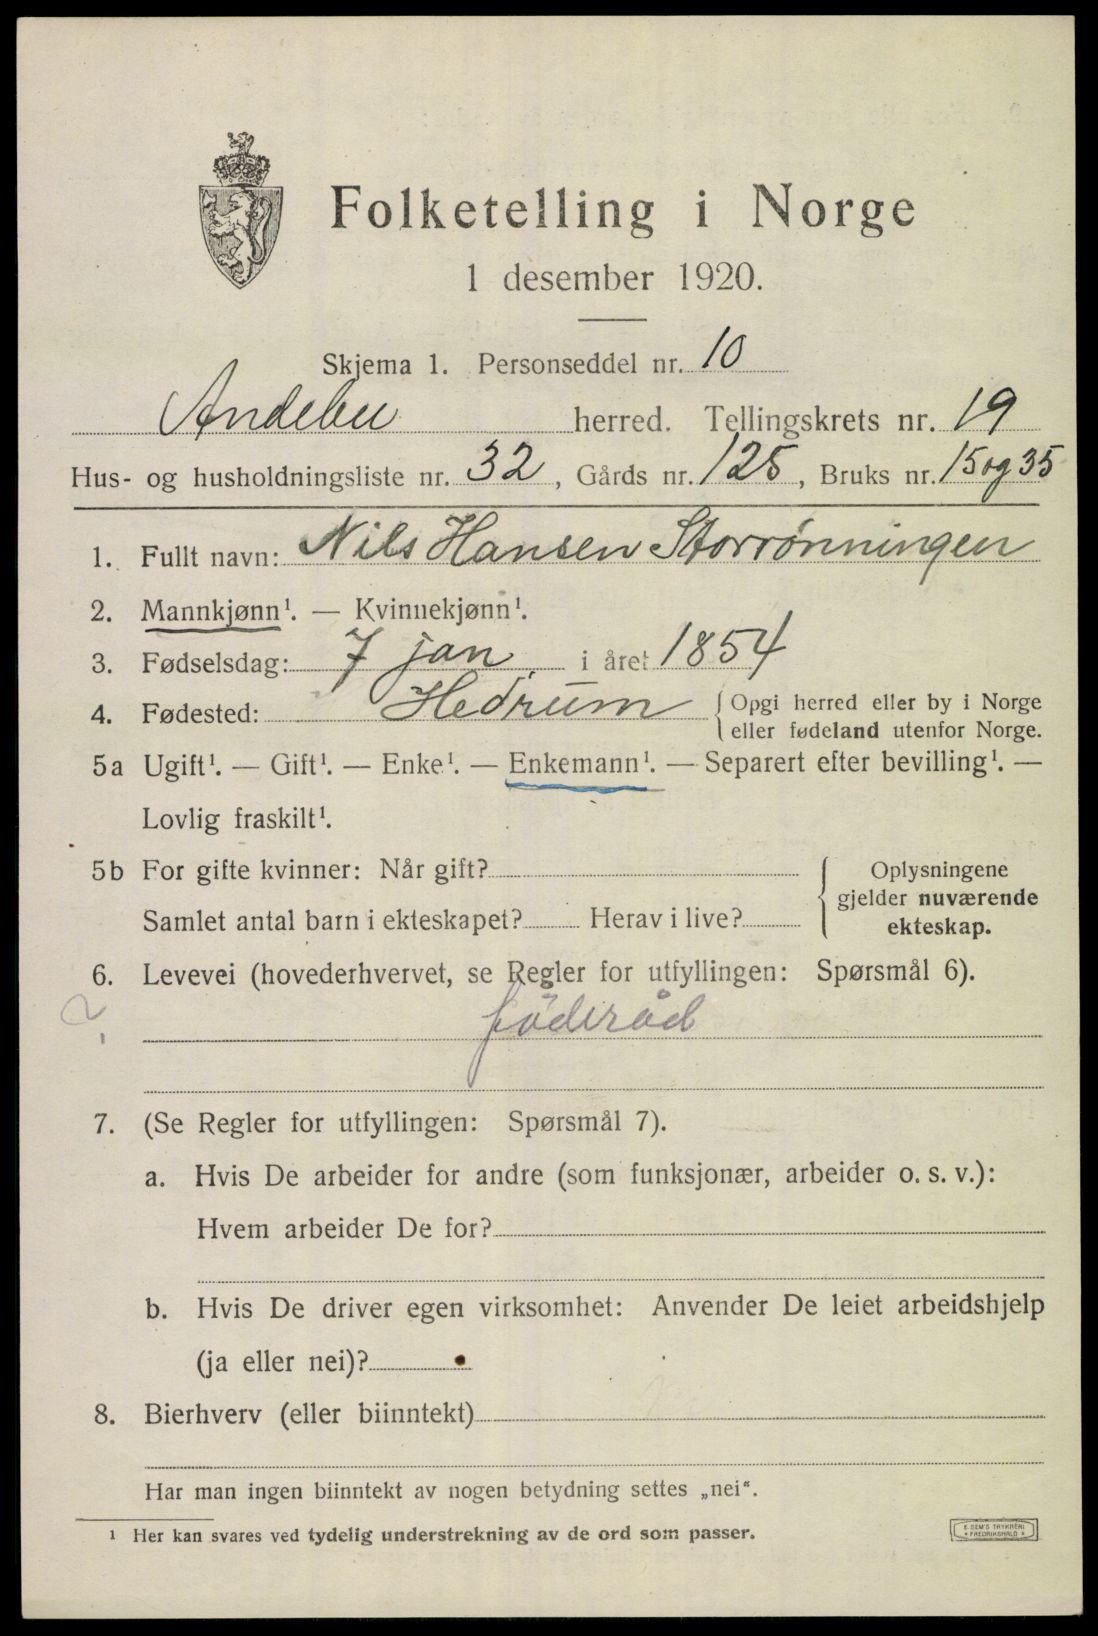 Folketelling i Norge
1 desember 1920.
Skjema 1. Personseddel nr. 10
Andebu herred. Tellingskrets nr. 19
Hus- og husholdningsliste nr. 32, Gårds nr. 125, Bruks nr. 15 og 35
1. Fullt navn: Nils Hansen Storrønningen
2. Mannkjønn¹. — Kvinnekjønn¹.
3. Fødselsdag: 7 jan. i året 1854
4. Fødested: Hedrum { Opgi herred eller by i Norge
eller fødeland utenfor Norge.
5a Ugift¹. — Gift¹. — Enke¹. — Enkemann¹. — Separert efter bevilling¹. —
Lovlig fraskilt¹.
5b For gifte kvinner: Når gift?
Samlet antal barn i ekteskapet? Herav i live?
{ Oplysningene
gjelder nuværende
ekteskap.
6. Levevei (hovederhvervet, se Regler for utfyllingen: Spørsmål 6).
? föderåd
7. (Se Regler for utfyllingen: Spørsmål 7).
a. Hvis De arbeider for andre (som funksjonær, arbeider o. s. v.):
Hvem arbeider De for?
b. Hvis De driver egen virksomhet: Anvender De leiet arbeidshjelp
(ja eller nei)?
8. Bierhverv (eller biinntekt)
Har man ingen biinntekt av nogen betydning settes „nei“.
¹ Her kan svares ved tydelig understrekning av de ord som passer.
E. SEM'S TRYKKERI
* FREDRIKSHALD *